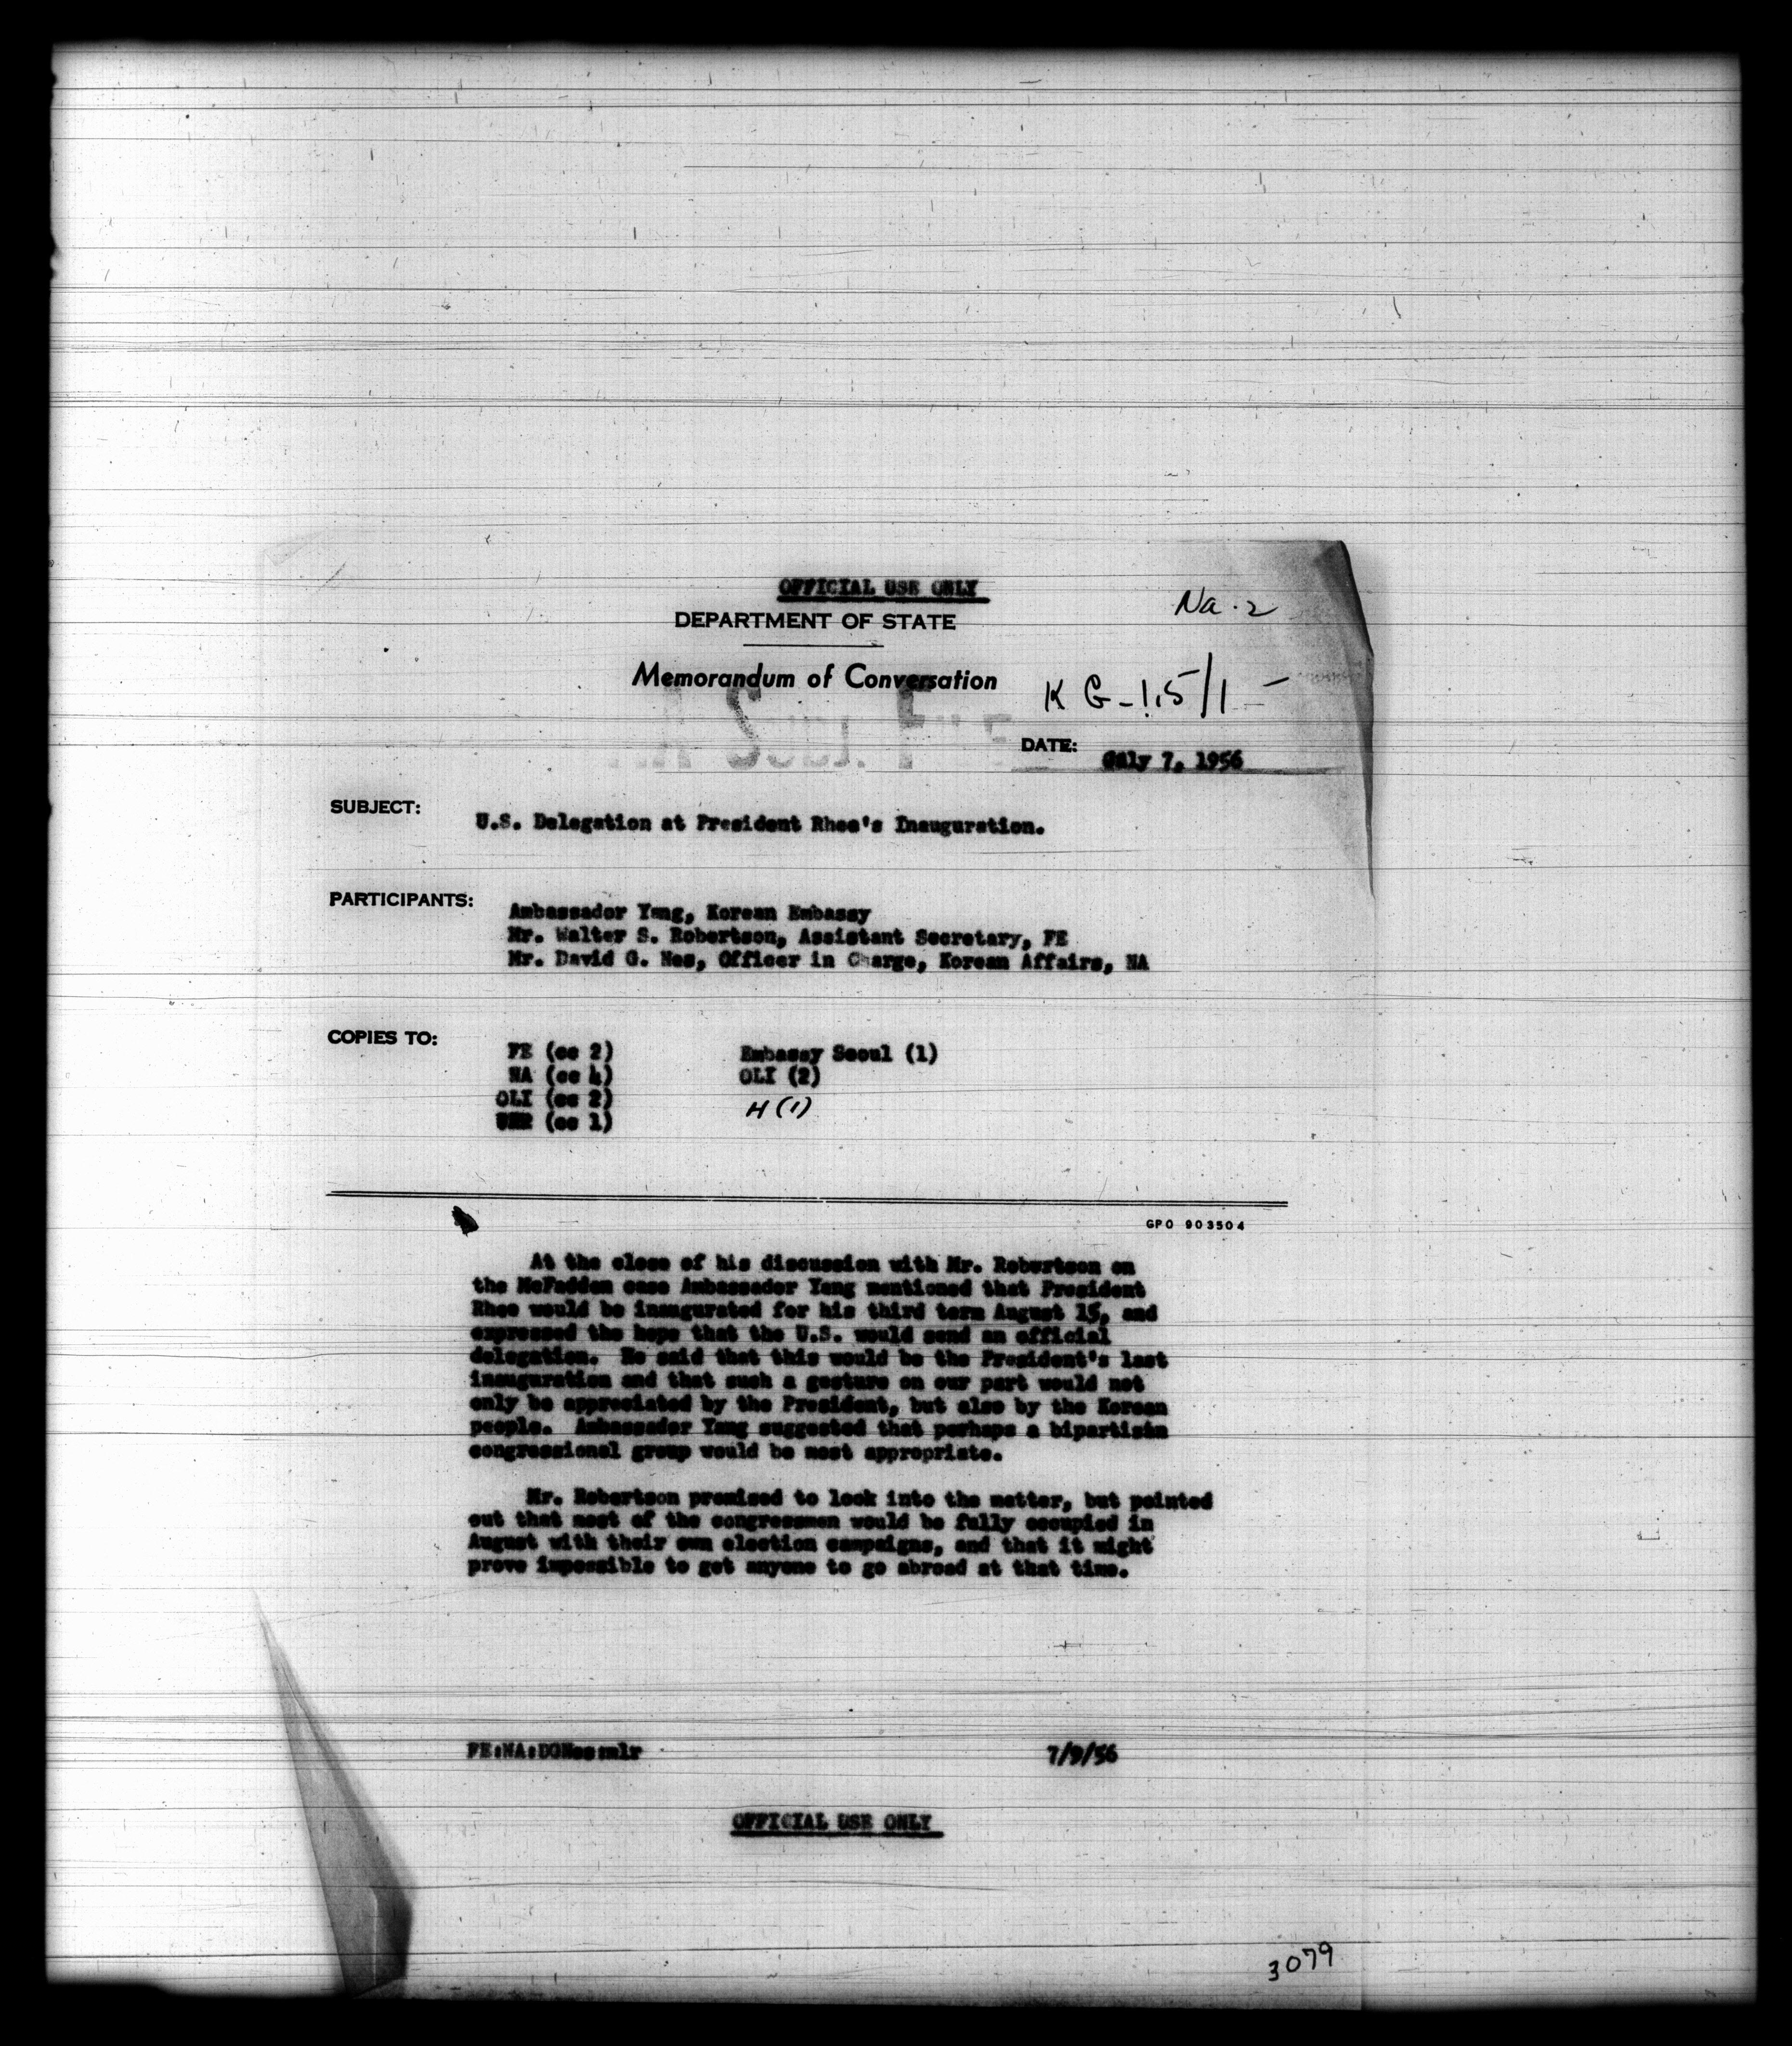 OFFICIAL USE ONLY
DEPARTMENT OF STATE
Na.2
Memorandum of Conversation
K G-1.5/1 -
DATE: July 7, 1956
SUBJECT: U.S. Delegation at President Rhee's Inauguration.
PARTICIPANTS: Ambassador Yang, Korean Embassy
Mr. Walter S. Robertson, Assistant Secretary, FE
Mr. David G. Nes, Officer in Charge, Korean Affairs, NA
COPIES TO:
FE (cc 2) Embassy Seoul (1)
NA (cc 4) OLI (2)
OLI (cc 2) H (1)
(cc 1)
GPO 903504
At the close of his discussion with Mr. Robertson on
the McFadden case Ambassador Yang mentioned that President
Rhee would be inaugurated for his third term August 15, and
expressed the hope that the U.S. would send an official
delegation. He said that this would be the President's last
inauguration and that such a gesture on our part would not
only be appreciated by the President, but also by the Korean
people. Ambassador Yang suggested that perhaps a bipartisan
congressional group would be most appropriate.
Mr. Robertson promised to look into the matter, but pointed
out that most of the congressmen would be fully occupied in
August with their own election campaigns, and that it might
prove impossible to get anyone to go abroad at that time.
FE:NA:DGNes:mlr 7/9/56
OFFICIAL USE ONLY
3079